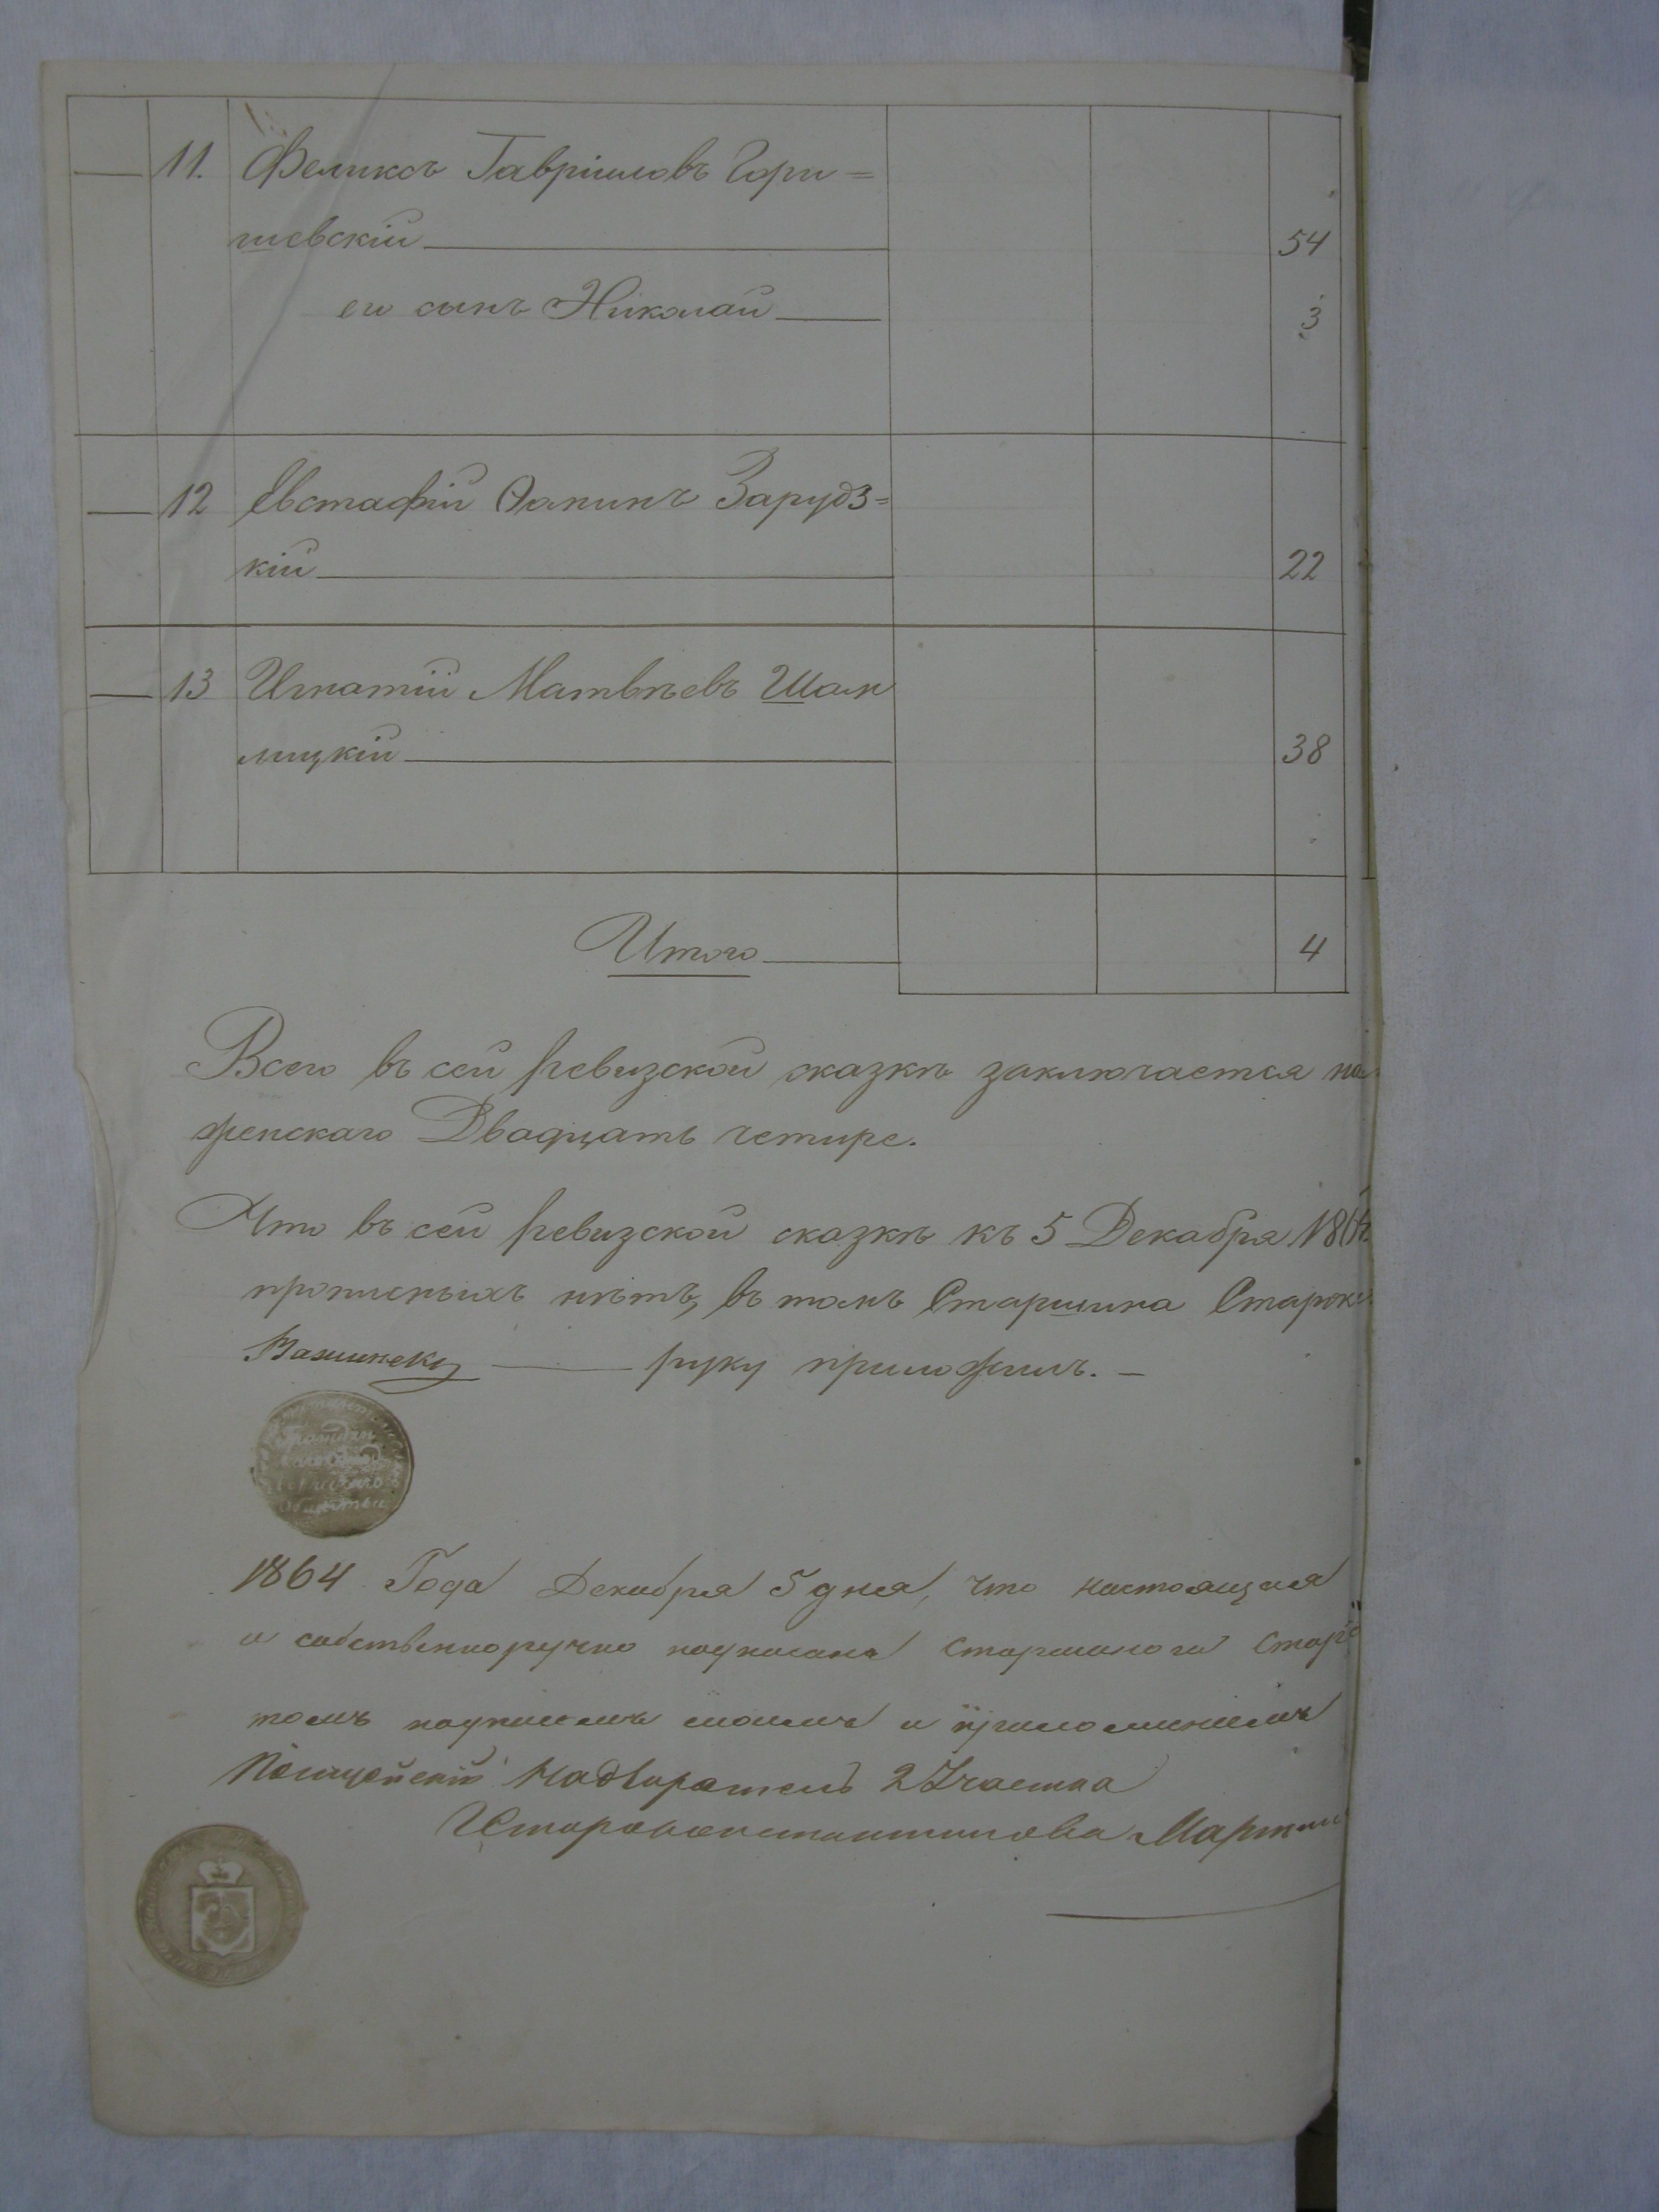 11. Феликсъ Гавріиловъ Гори=
шевскій 54
его сынъ Николай 3
12 Евстафій Зарудз=
кій 22
13 Игнатій Матвѣевъ Шам
лицкій 38
Итого 4
Всего въ сей ревизской сказкѣ заключается
женскаго Двадцать четире.
Что въ сей ревизской сказкѣ къ 5 Декабря 1864
прописныхъ нѣтъ, въ томъ Старшина Старок
руку приложилъ.
Граждан
Общества
1864 Года Декабря 5 дня, что настоящая
и собственноручно подписана Старшиною Старо
томъ подписомъ моимъ и приложеніемъ
Полицейскій Надзиратель 2 Участка
Староконстантинова Мартин